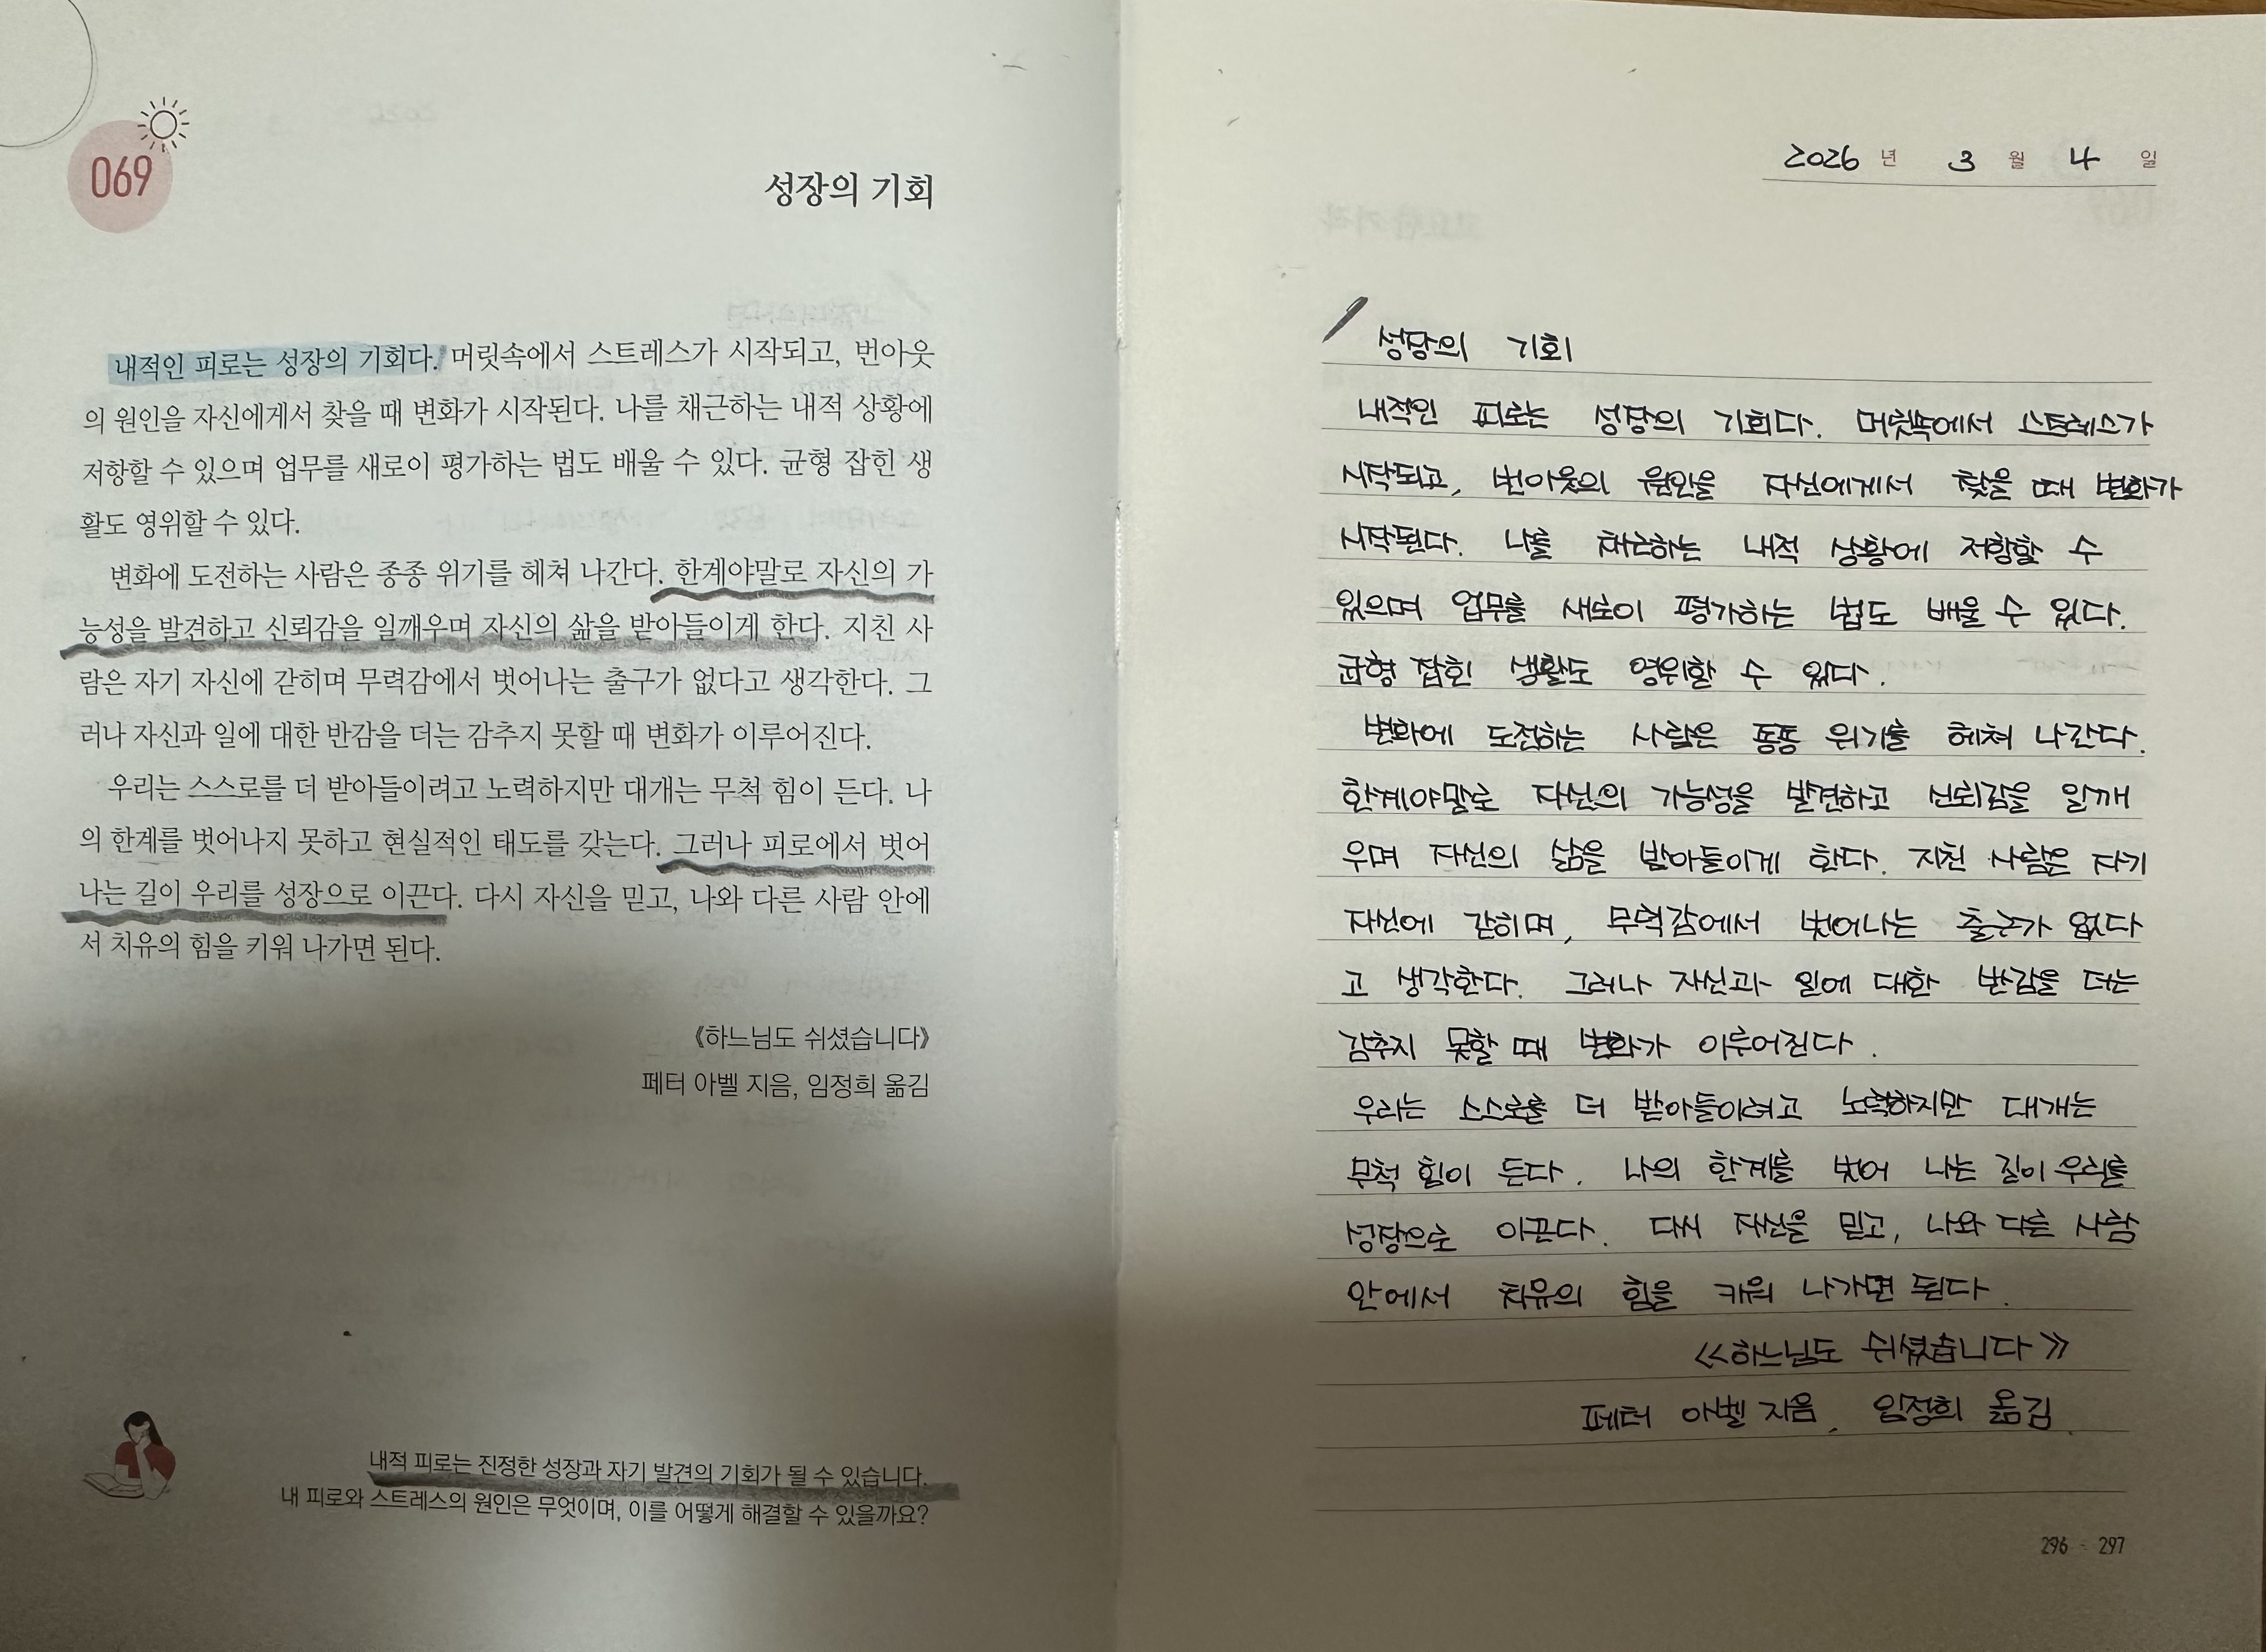 069
성장의 기회
내적인 피로는 성장의 기회다. 머릿속에서 스트레스가 시작되고, 번아웃
의 원인을 자신에게서 찾을 때 변화가 시작된다. 나를 채근하는 내적 상황에
저항할 수 있으며 업무를 새로이 평가하는 법도 배울 수 있다. 균형 잡힌 생
활도 영위할 수 있다.
변화에 도전하는 사람은 종종 위기를 헤쳐 나간다. 한계야말로 자신의 가
능성을 발견하고 신뢰감을 일깨우며 자신의 삶을 받아들이게 한다. 지친 사
람은 자기 자신에 갇히며 무력감에서 벗어나는 출구가 없다고 생각한다. 그
러나 자신과 일에 대한 반감을 더는 감추지 못할 때 변화가 이루어진다.
우리는 스스로를 더 받아들이려고 노력하지만 대개는 무척 힘이 든다. 나
의 한계를 벗어나지 못하고 현실적인 태도를 갖는다. 그러나 피로에서 벗어
나는 길이 우리를 성장으로 이끈다. 다시 자신을 믿고, 나와 다른 사람 안에
서 치유의 힘을 키워 나가면 된다.
《하느님도 쉬셨습니다》
페터 아벨 지음, 임정희 옮김
내적 피로는 진정한 성장과 자기 발견의 기회가 될 수 있습니다.
내 피로와 스트레스의 원인은 무엇이며, 이를 어떻게 해결할 수 있을까요?
2026 년 3 월 4 일
성장의 기회
내적인 피로는 성장의 기회다. 머릿속에서 스트레스가
시작되고, 번아웃의 원인을 자신에게서 찾을 때 변화가
시작된다. 나를 채근하는 내적 상황에 저항할 수
있으며 업무를 새로이 평가하는 법도 배울 수 있다.
균형 잡힌 생활도 영위할 수 있다.
변화에 도전하는 사람은 종종 위기를 헤쳐 나간다.
한계야말로 자신의 가능성을 발견하고 신뢰감을 일깨
우며 자신의 삶을 받아들이게 한다. 지친 사람은 자기
자신에 갇히며, 무력감에서 벗어나는 출구가 없다
고 생각한다. 그러나 자신과 일에 대한 반감을 더는
감추지 못할 때 변화가 이루어진다.
우리는 스스로를 더 받아들이려고 노력하지만 대개는
무척 힘이 든다. 나의 한계를 벗어 나는 길이 우리를
성장으로 이끈다. 다시 자신을 믿고, 나와 다른 사람
안에서 치유의 힘을 키워 나가면 된다.
<<하느님도 쉬셨습니다>>
페터 아벨 지음, 임정희 옮김.
296 - 297